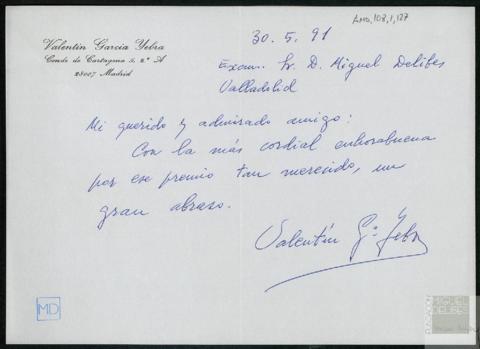 AMD,108,1,127
Valentín García Yebra
Conde de Cartagena 5, 2.º A
28007 Madrid
30.5.91
Excmo. Sr. D. Miguel Delibes
Valladolid
Mi querido y admirado amigo:
Con la más cordial enhorabuena
por ese premio tan merecido, un
gran abrazo.
Valentín Gª Yebra
MD
FUNDACIÓN
MIGUEL
DELIBES